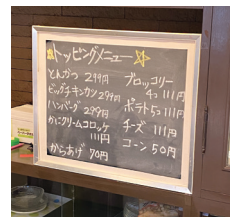 トッピングメニュー
とんかつ 299円
ビッグチキンカツ 299円
ハンバーグ 299円
かにクリームコロッケ
111円
からあげ 70円
ブロッコリー
4コ 111円
ポテト5コ 111円
チーズ 111円
コーン 50円